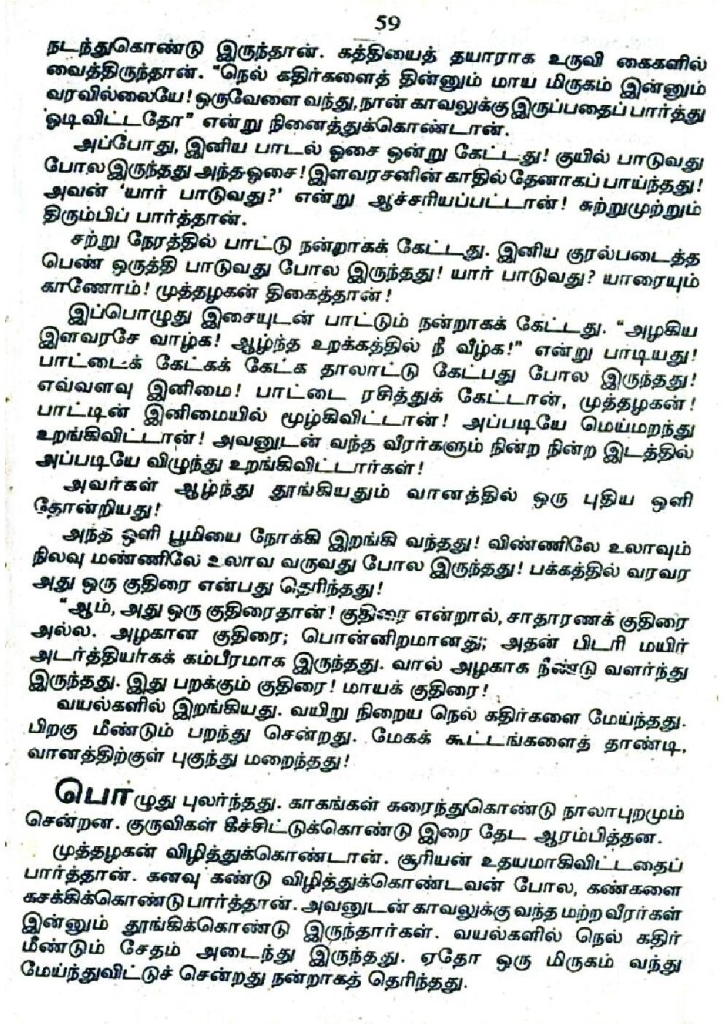 59
நடந்துகொண்டு இருந்தான். கத்தியைத் தயாராக உருவி கைகளில்
வைத்திருந்தான். “நெல் கதிர்களைத் தின்னும் மாய மிருகம் இன்னும்
வரவில்லையே! ஒருவேளை வந்து, நான் காவலுக்கு இருப்பதைப் பார்த்து
ஓடிவிட்டதோ” என்று நினைத்துக்கொண்டான்.
அப்போது, இனிய பாடல் ஓசை ஒன்று கேட்டது! குயில் பாடுவது
போல இருந்தது அந்த ஓசை! இளவரசனின் காதில் தேனாகப் பாய்ந்தது!
அவன் ‘யார் பாடுவது?’ என்று ஆச்சரியப்பட்டான்! சுற்றுமுற்றும்
திரும்பிப் பார்த்தான்.
சற்று நேரத்தில் பாட்டு நன்றாகக் கேட்டது. இனிய குரல்படைத்த
பெண் ஒருத்தி பாடுவது போல இருந்தது! யார் பாடுவது? யாரையும்
காணோம்! முத்தழகன் திகைத்தான்!
இப்பொழுது இசையுடன் பாட்டும் நன்றாகக் கேட்டது. “அழகிய
இளவரசே வாழ்க! ஆழ்ந்த உறக்கத்தில் நீ வீழ்க!” என்று பாடியது!
பாட்டைக் கேட்கக் கேட்க தாலாட்டு கேட்பது போல இருந்தது!
எவ்வளவு இனிமை! பாட்டை ரசித்துக் கேட்டான், முத்தழகன்!
பாட்டின் இனிமையில் மூழ்கிவிட்டான்! அப்படியே மெய்மறந்து
உறங்கிவிட்டான்! அவனுடன் வந்த வீரர்களும் நின்ற நின்ற இடத்தில்
அப்படியே விழுந்து உறங்கிவிட்டார்கள்!
அவர்கள் ஆழ்ந்து தூங்கியதும் வானத்தில் ஒரு புதிய ஒளி
தோன்றியது!
அந்த ஒளி பூமியை நோக்கி இறங்கி வந்தது! விண்ணிலே உலாவும்
நிலவு மண்ணிலே உலாவ வருவது போல இருந்தது! பக்கத்தில் வரவர
அது ஒரு குதிரை என்பது தெரிந்தது!
“ஆம், அது ஒரு குதிரைதான்! குதிரை என்றால், சாதாரணக் குதிரை
அல்ல. அழகான குதிரை; பொன்னிறமானது; அதன் பிடரி மயிர்
அடர்த்தியாகக் கம்பீரமாக இருந்தது. வால் அழகாக நீண்டு வளர்ந்து
இருந்தது. இது பறக்கும் குதிரை! மாயக் குதிரை!
வயல்களில் இறங்கியது. வயிறு நிறைய நெல் கதிர்களை மேய்ந்தது.
பிறகு மீண்டும் பறந்து சென்றது. மேகக் கூட்டங்களைத் தாண்டி,
வானத்திற்குள் புகுந்து மறைந்தது!
பொழுது புலர்ந்தது. காகங்கள் கரைந்துகொண்டு நாலாபுறமும்
சென்றன. குருவிகள் கீச்சிட்டுக்கொண்டு இரை தேட ஆரம்பித்தன.
முத்தழகன் விழித்துக்கொண்டான். சூரியன் உதயமாகிவிட்டதைப்
பார்த்தான். கனவு கண்டு விழித்துக்கொண்டவன் போல, கண்களை
கசக்கிக்கொண்டு பார்த்தான். அவனுடன் காவலுக்கு வந்த மற்ற வீரர்கள்
இன்னும் தூங்கிக்கொண்டு இருந்தார்கள். வயல்களில் நெல் கதிர்
மீண்டும் சேதம் அடைந்து இருந்தது. ஏதோ ஒரு மிருகம் வந்து
மேய்ந்துவிட்டுச் சென்றது நன்றாகத் தெரிந்தது.